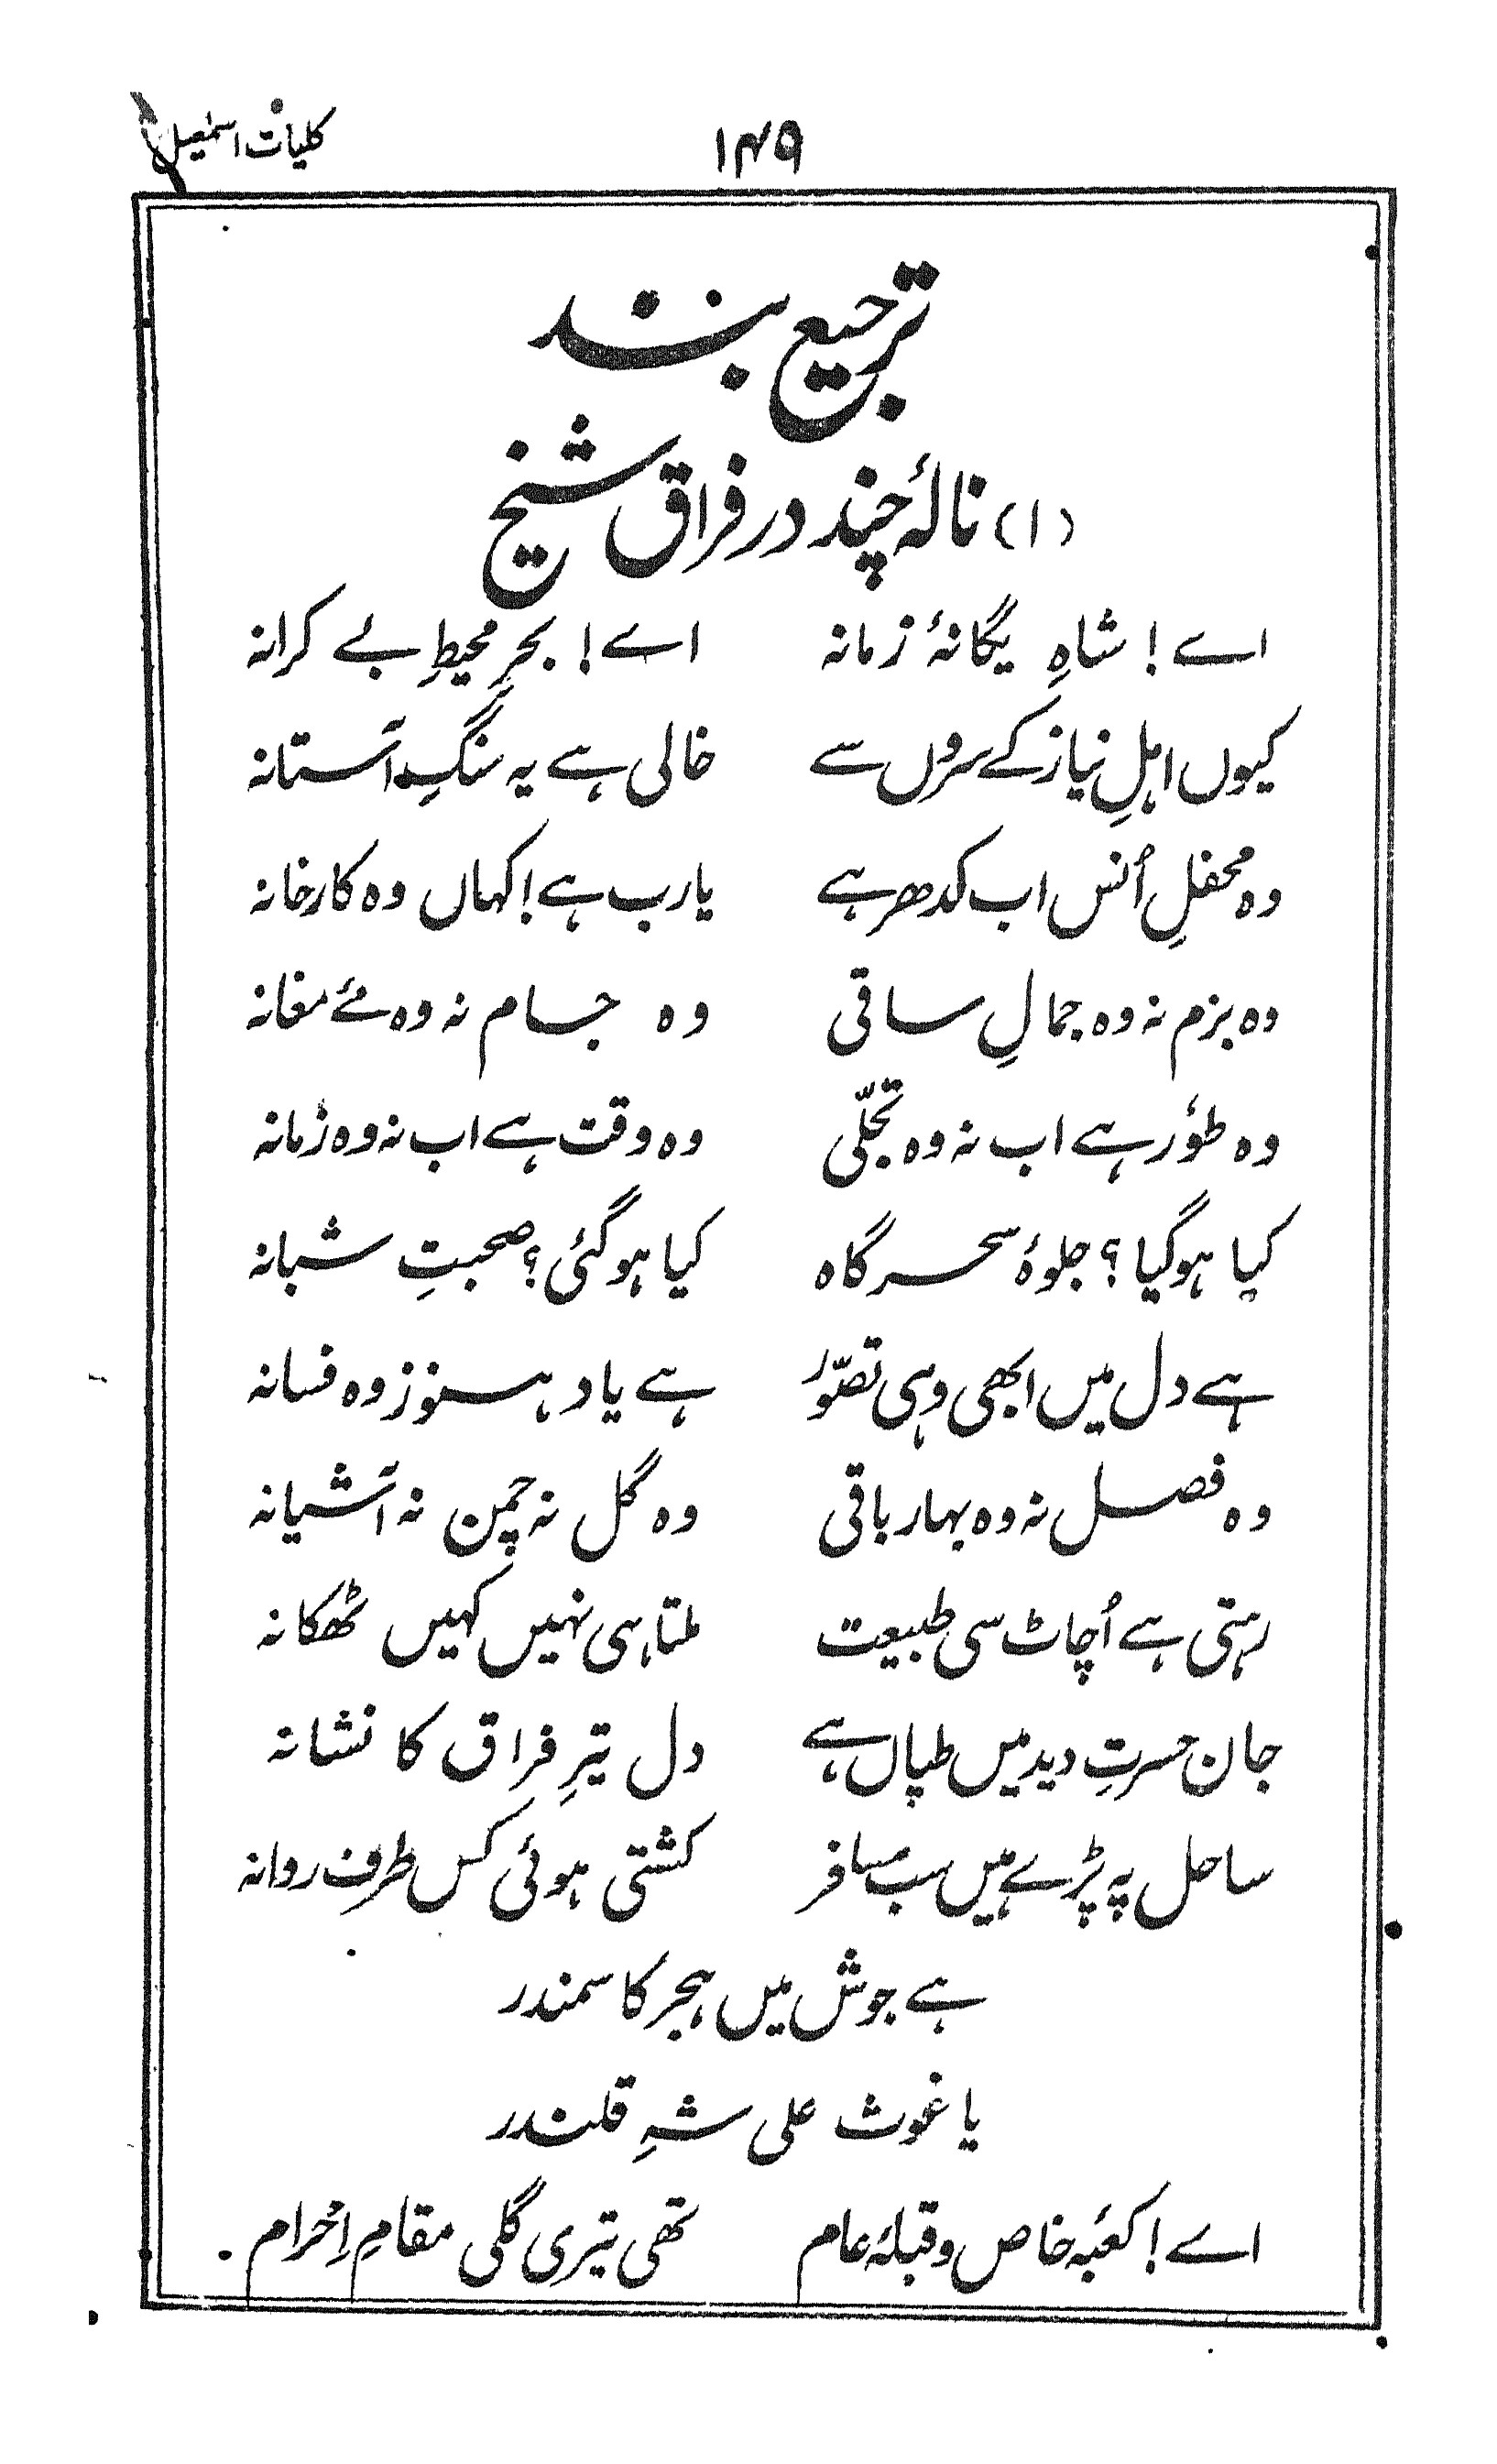 کلیات اسمٰعیل ۱۴۹
ترجیع بند
(۱) نالۂ چند در فراق شیخ
اے! شاہِ یگانۂ زمانہ اے! بحرِ محیطِ بے کرانہ
کیوں اہلِ نیاز کے سروں سے خالی ہے یہ سنگِ آستانہ
وہ محفلِ اُنس اب کدھر ہے یا رب ہے! کہاں وہ کارخانہ
وہ بزم نہ وہ جمالِ ساقی وہ جام نہ وہ مئے مغانہ
وہ طوٗر ہے اب نہ وہ تجلّی وہ وقت ہے اب نہ وہ زمانہ
کیا ہو گیا؟ جلوۂ سحر گاہ کیا ہو گئی؟ صحبتِ شبانہ
ہے دل میں ابھی وہی تصوّر ہے یاد ہنوز وہ فسانہ
وہ فصل نہ وہ بہار باقی وہ گل نہ چمن نہ آشیانہ
رہتی ہے اُچاٹ سی طبیعت ملتا ہی نہیں کہیں ٹھکانہ
جان حسرتِ دید میں طپاں ہے دل تیرِ فراق کا نشانہ
ساحل پہ پڑے ہیں سب مسافر کشتی ہوئی کس طرف روانہ
ہے جوش میں ہجر کا سمندر
یا غوث علی شہِ قلندر
اے! کعبۂ خاص و قبلۂ عام تھی تیری گلی مقامِ اِحْرام